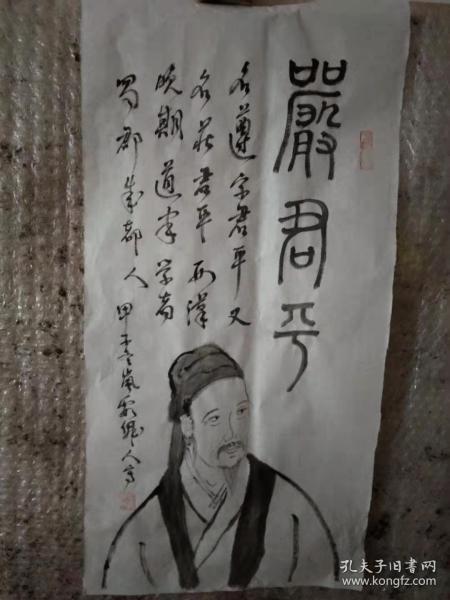 嚴君平
名遵字君平又
名莊君平西漢
晚期道家学者
蜀郡成都人
甲午冬嵐
人写
孔夫子旧书网
www.kongfz.com